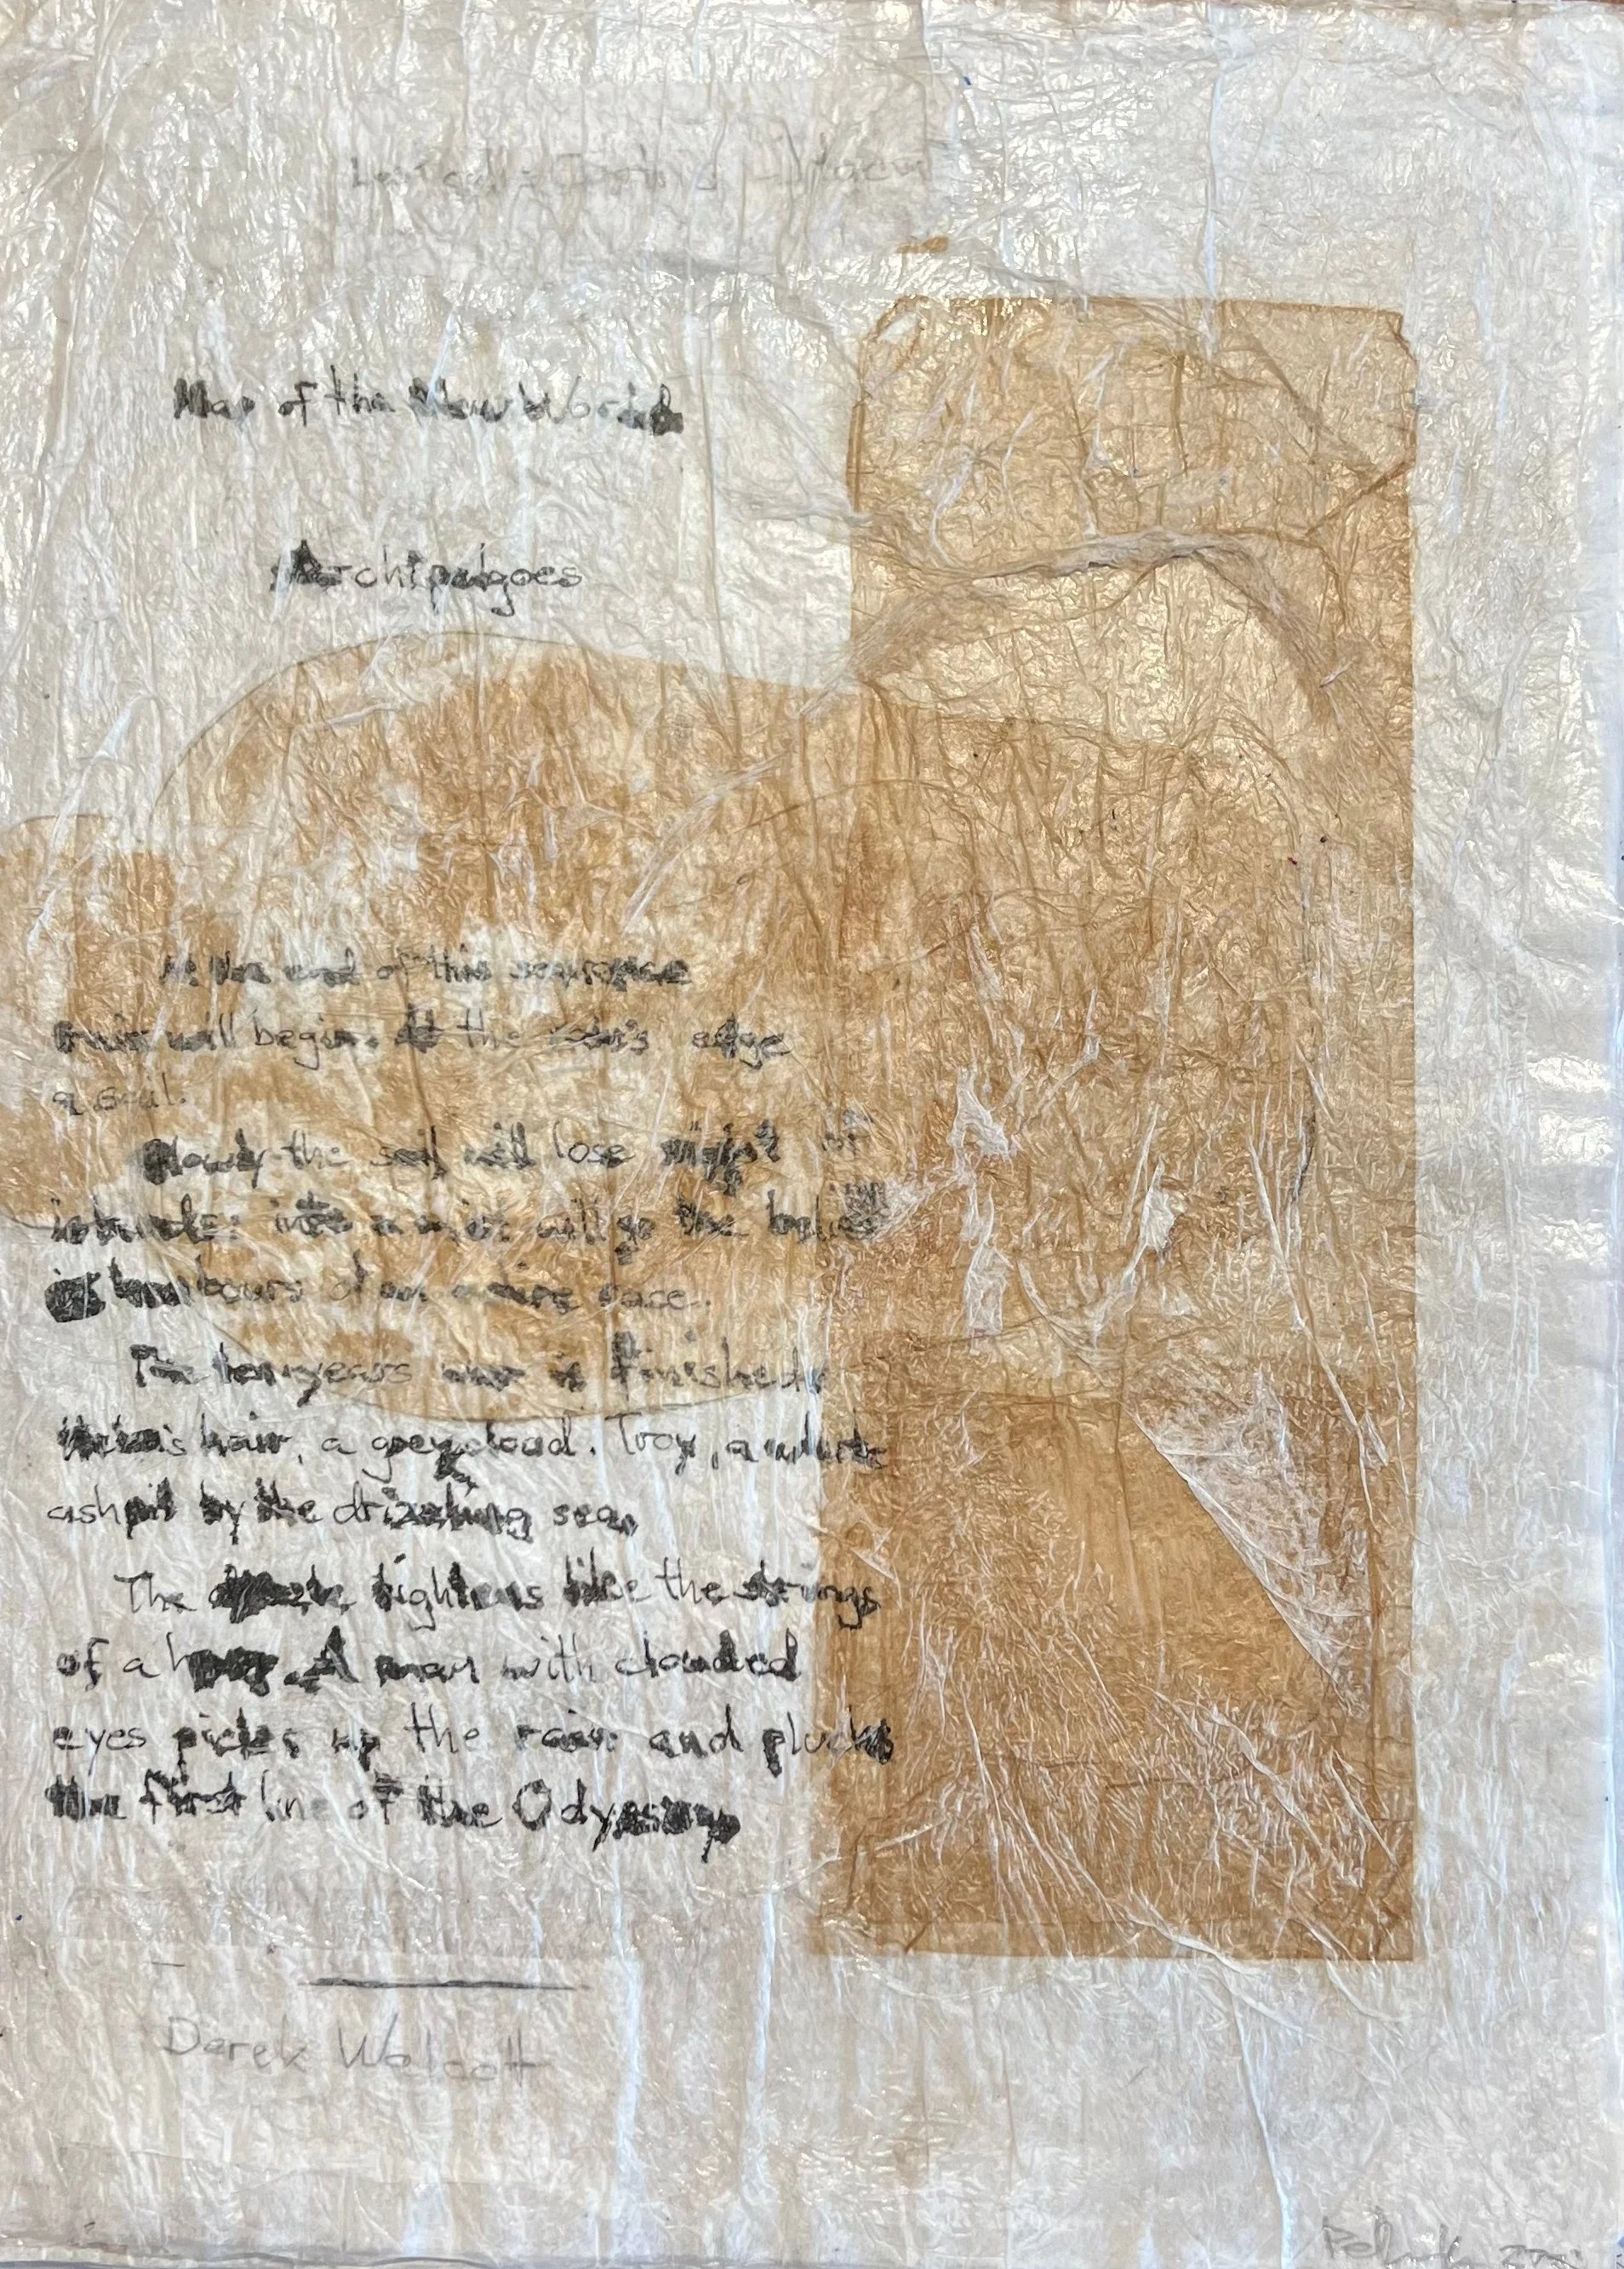 Map of the New World
Archipelgoes
At the end of this sequence
rain will begin. At the rain's edge
a sail.
Slowly the sail will lose sight of
islands; into a mist will go the belief
in harbours of an entire race.
The ten years war is finished.
Helen's hair, a grey cloud. Troy, a white
ashpit by the drizzling sea.
The drizzle tightens like the strings
of a harp. A man with clouded
eyes picks up the rain and plucks
the first line of the Odyssey
Derek Walcott